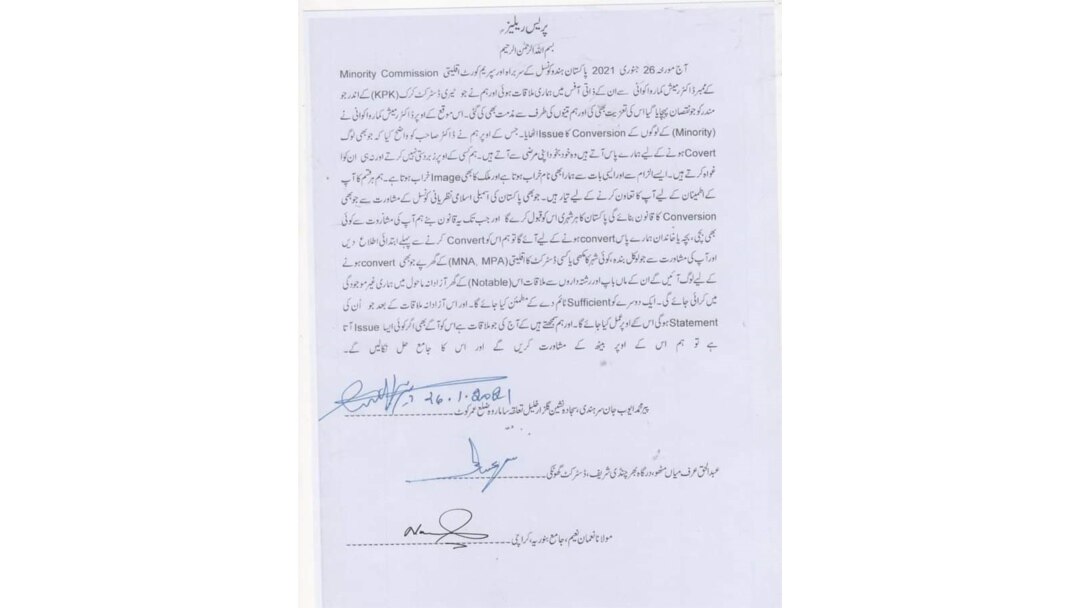 پریس ریلیز
بسم اللہ الرحمٰن الرحیم
آج مورخہ 26 جنوری 2021 پاکستان ہندو کونسل کے سربراہ اور سپریم کورٹ اقلیتی Minority Commission
کے ممبر ڈاکٹر رمیش کمار وانکوانی سے ان کے ذاتی آفس میں ہماری ملاقات ہوئی اور ہم نے جو ٹیری ڈسٹرکٹ کرک (KPK) کے اندر جو
مندر کو جو نقصان پہنچایا گیا اس کی تعزیت بھی کی اور ہم تینوں کی طرف سے مذمت بھی کی گئی۔ اس موقع کے اوپر ڈاکٹر رمیش کمار وانکوانی نے
(Minority) کے لوگوں کے Conversion کا Issue اٹھایا۔ جس کے اوپر ہم نے ڈاکٹر صاحب کو واضح کیا کہ جو بھی لوگ
Covert ہونے کے لیے ہمارے پاس آتے ہیں وہ خود بخود اپنی مرضی سے آتے ہیں۔ ہم کسی کے اوپر زبردستی نہیں کرتے اور نہ ہی ان کو ا
غواہ کرتے ہیں۔ ایسے الزام سے اور ایسی بات سے ہمارا بھی نام خراب ہوتا ہے اور ملک کا بھی Image خراب ہوتا ہے۔ ہم ہر قسم کا آپ
کے اطمینان کے لیے آپ کا تعاون کرنے کے لیے تیار ہیں۔ جو بھی پاکستان کی اسمبلی اسلامی نظریاتی کونسل کے مشاورت سے جو بھی
Conversion کا قانون بنائے گی پاکستان کا ہر شہری اس کو قبول کرے گا اور جب تک یہ قانون بنے ہم آپ کی مشاورت سے کوئی
بھی بچی، بچہ یا خاندان ہمارے پاس convert ہونے کے لیے آئے گا تو ہم اس کو Convert کرنے سے پہلے ابتدائی اطلاع دیں
اور آپ کی مشاورت سے جو لوکل بندہ، کوئی شہر کا مکھی یا کسی ڈسٹرکٹ کا اقلیتی (MNA, MPA) کے گھر پے جو بھی convert ہونے
کے لیے لوگ آئیں گے ان کے ماں باپ اور رشتہ داروں سے ملاقات اس (Notable) کے گھر آزادانہ ماحول میں ہماری غیر موجودگی
میں کرائی جائے گی۔ ایک دوسرے کو Sufficient ٹائم دے کے مطمئن کیا جائے گا۔ اور اس آزادانہ ملاقات کے بعد جو اُن کی
Statement ہوگی اس کے اوپر عمل کیا جائے گا۔ اور ہم سمجھتے ہیں کے آج کی جو ملاقات ہے اس کو آگے بھی اگر کوئی ایسا Issue آتا
ہے تو ہم اس کے اوپر بیٹھ کے مشاورت کریں گے اور اس کا جامع حل نکالیں گے۔
26.1.2021
پیر محمد ایوب جان سرہندی، سجادہ نشین گلزار خلیل تعلقہ سامارو ضلع عمر کوٹ
عبدالحق عرف میاں مٹھو، درگاہ بھرچونڈی شریف، ڈسٹرکٹ گھوٹکی
مولانا نعمان نعیم، جامع بنوریہ، کراچی